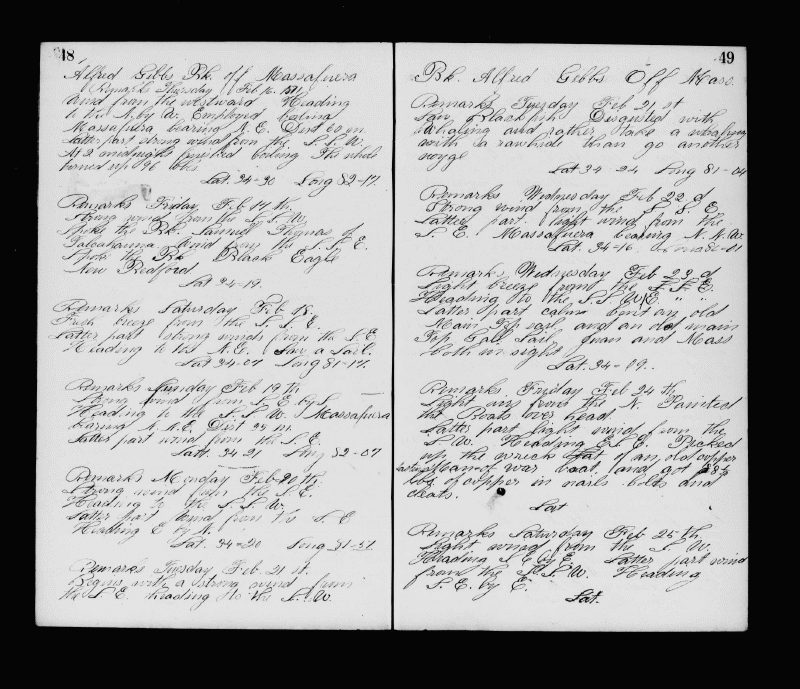 48
Alfred Gibbs Bk. off Massafuera
Remarks Thursday Feb 16. 1871
wind from the westward Heading
to the N. by W. Employed boiling
Massafuera bearing N. E. Dist 60 m.
Latter part strong wind from the S. S. W.
At 2 midnight finished boiling The whale
turned up 96 bbls
Lat. 34-30 Long 82-17.
Remarks Friday Feb 17 th
Strong wind from the S. S. W.
Spoke the Bk. Samuel Thomas of
Talcahuana Wind from the S. S. E.
Spoke the Bk Black Eagle
New Bedford
Lat 34-19.
Remarks Saturday Feb 18.
Fresh breeze from the S. S. E.
Latter part strong winds from the S. E
Heading to the N. E. Saw a Sail.
Lat 34-07 Long 81-17.
Remarks Sunday Feb 19 th
Strong wind from S. E. by S
Heading to the S. S. W. Massafuera
bearing N. N. E. Dist 25 m.
Latter part wind from the S. E.
Latt. 34 21 Long 82-07
Remarks Monday Feb 20 th.
Strong wind from the S. E.
Heading to the S. S. W.
Latter part wind from the S. E
Heading E by N.
Lat. 34-20 Long 81-57.
Remarks Tuesday Feb. 21 st.
Begins with a strong wind from
the S. E. heading to the S. W.
49
Bk. Alfred Gibbs Off Mass.
Remarks Tuesday Feb 21 st
Saw Blackfish Disgusted with
whaling and rather take a
with a rawhide than go another
voyge
Lat 34-24 Long 81-04
Remarks Wednesday Feb 22 d
Strong wind from the S. S. E.
Latter part light wind from the
S. E. Massafuera bearing N. N. W.
Lat. 34-16.
Remarks Wednesday Feb 23 d
Light breeze from the S. S. E.
Heading to the S. S. W/E. " "
Latter part calm bent an old
Main Top sail and an old main
Top Gall Sail Juan and Mass
both in sight
Lat. 34-09.
Remarks Friday Feb 24 th
Light air from the N. Painted
the Boats over head
Latter part light wind from the
S. W. Heading E. S. E. Picked
up the wreck of an old copper
fastened Man of war boat, and got 85
lbs of copper in nails bolts and
cleats.
Lat
Remarks Saturday Feb 25 th
Light wind from the S. W.
Heading S. E by E. Latter part wind
from the S. S. W. Heading
S. E. by E.
Lat.